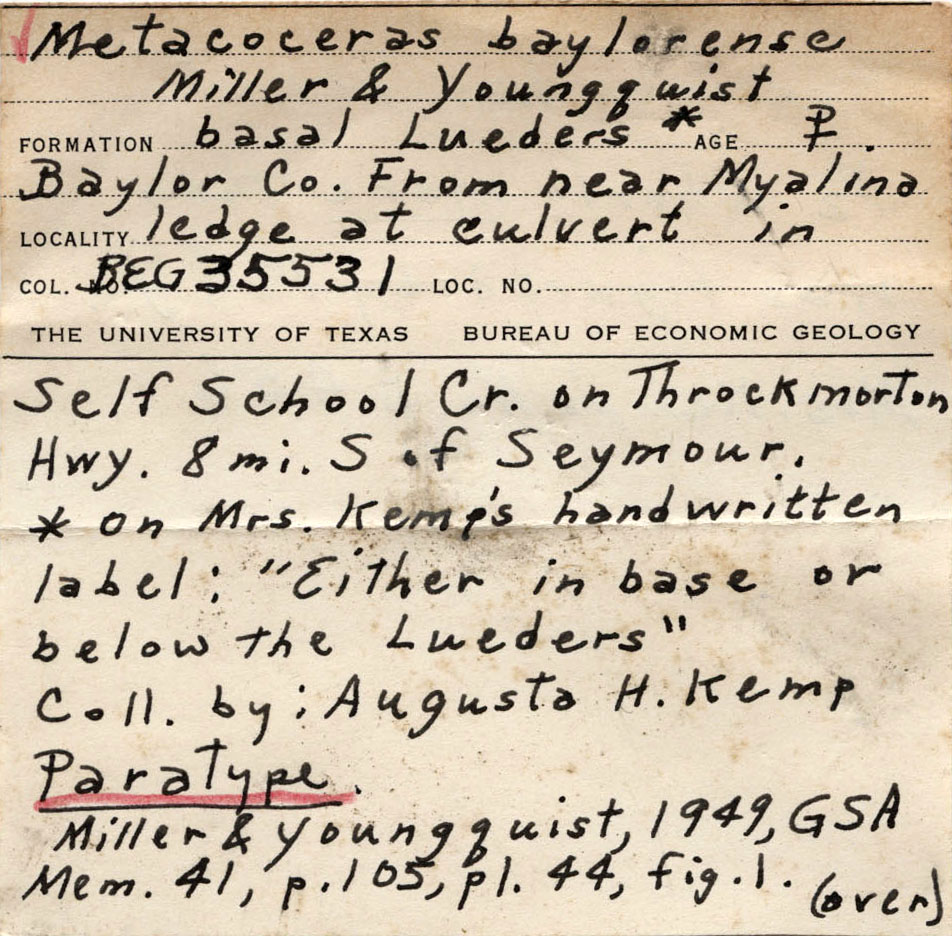 ✓ Metacoceras baylorense
Miller & Youngqquist
FORMATION basal Lueders * AGE P.
Baylor Co. From near Myalina
LOCALITY ledge at culvert in
COL. NO. BEG 35531 LOC. NO.
THE UNIVERSITY OF TEXAS BUREAU OF ECONOMIC GEOLOGY
Self School Cr. on Throckmorton
Hwy. 8 mi. S of Seymour.
* on Mrs. Kemp's handwritten
label: "Either in base or
below the Lueders"
Coll. by: Augusta H. Kemp
Paratype.
Miller & Youngqquist, 1949, GSA
Mem. 41, p. 105, pl. 44, fig. 1.
(over)